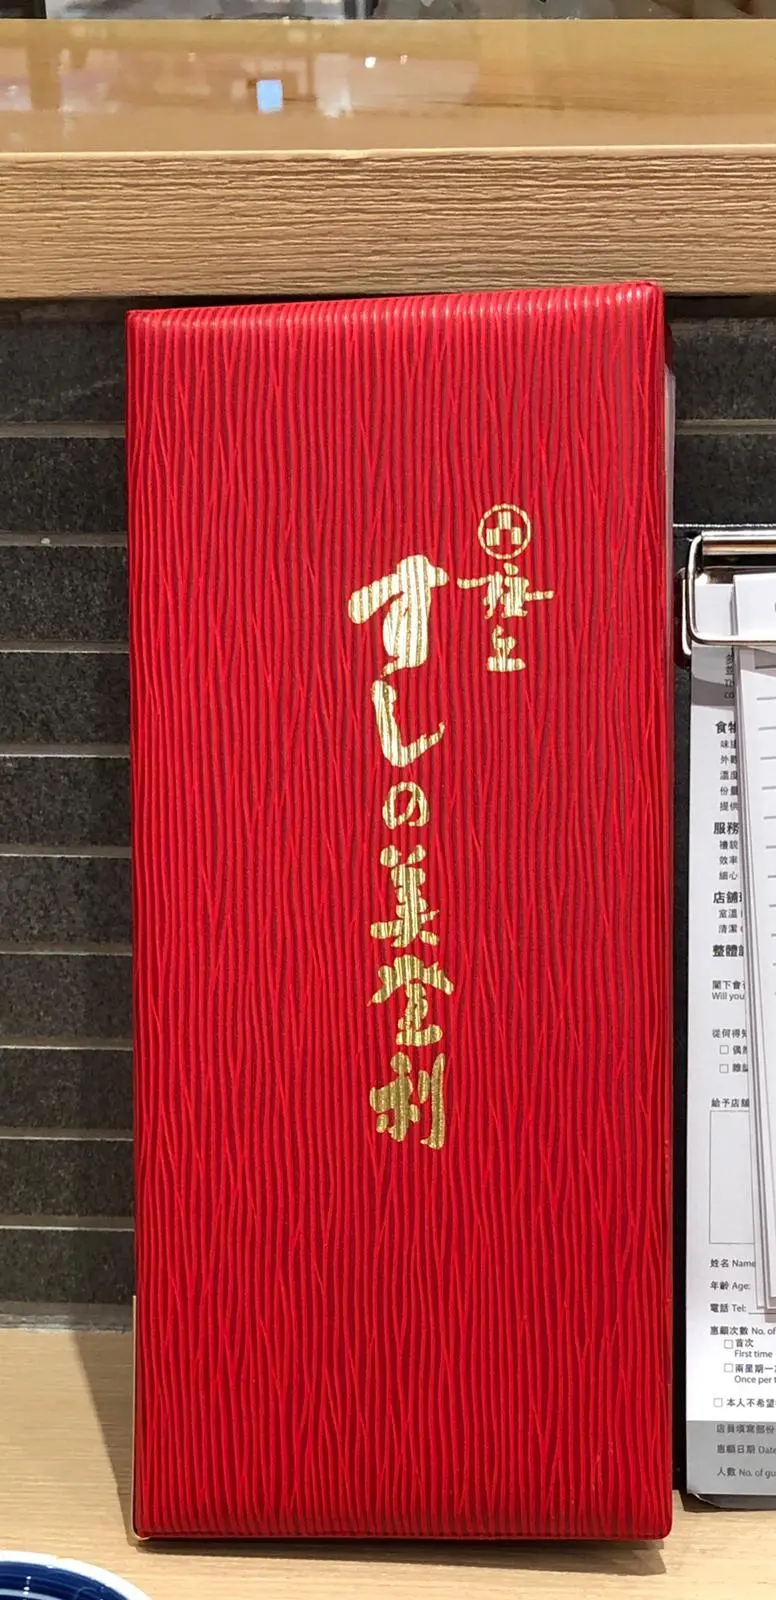 梅丘
すしの美登利
食物
味道
外觀
溫度
份量
提供
服務
禮貌
效率
細心
店舖
室溫
清潔
整體
閣下會
Will you
從何得知
□ 偶然
□ 雜誌
給予店舖
姓名 Name
年齡 Age:
電話 Tel:
惠顧次數 No. of
□ 首次
First time
□ 兩星期一
Once per
□ 本人不希望
店員填寫部份
惠顧日期 Date
人數 No. of gu